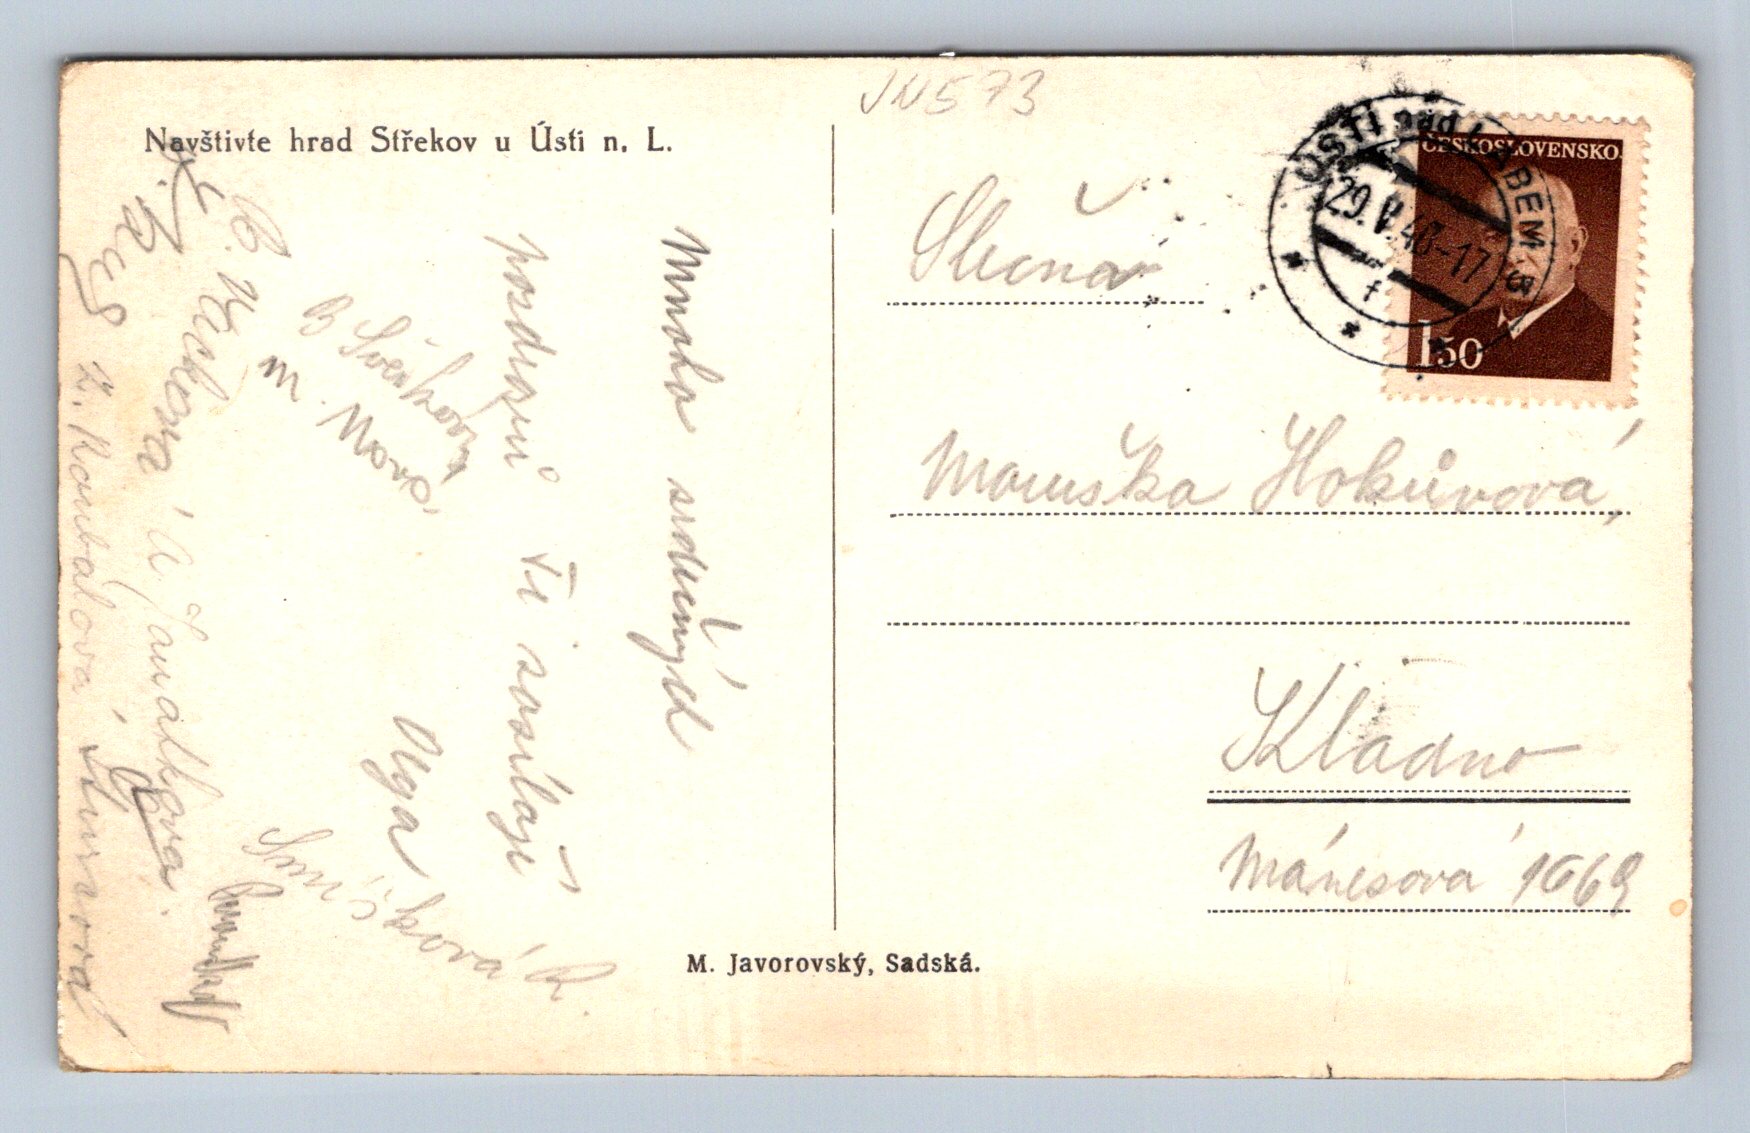 Navštivte hrad Střekov u Ústí n. L.
JN573
ÚSTÍ nad LABEM
29. V. 48-17
f
ČESKOSLOVENSKO
1.50
Slečna
Maruška Hokůvová,
Kladno
Mánesova 1069
Mnoho srdečných
pozdravů Ti zasílají
Olga
Smíšková R.
B Švejkovská
M. Nová
Z. Koubalová,
M. Javorovský, Sadská.